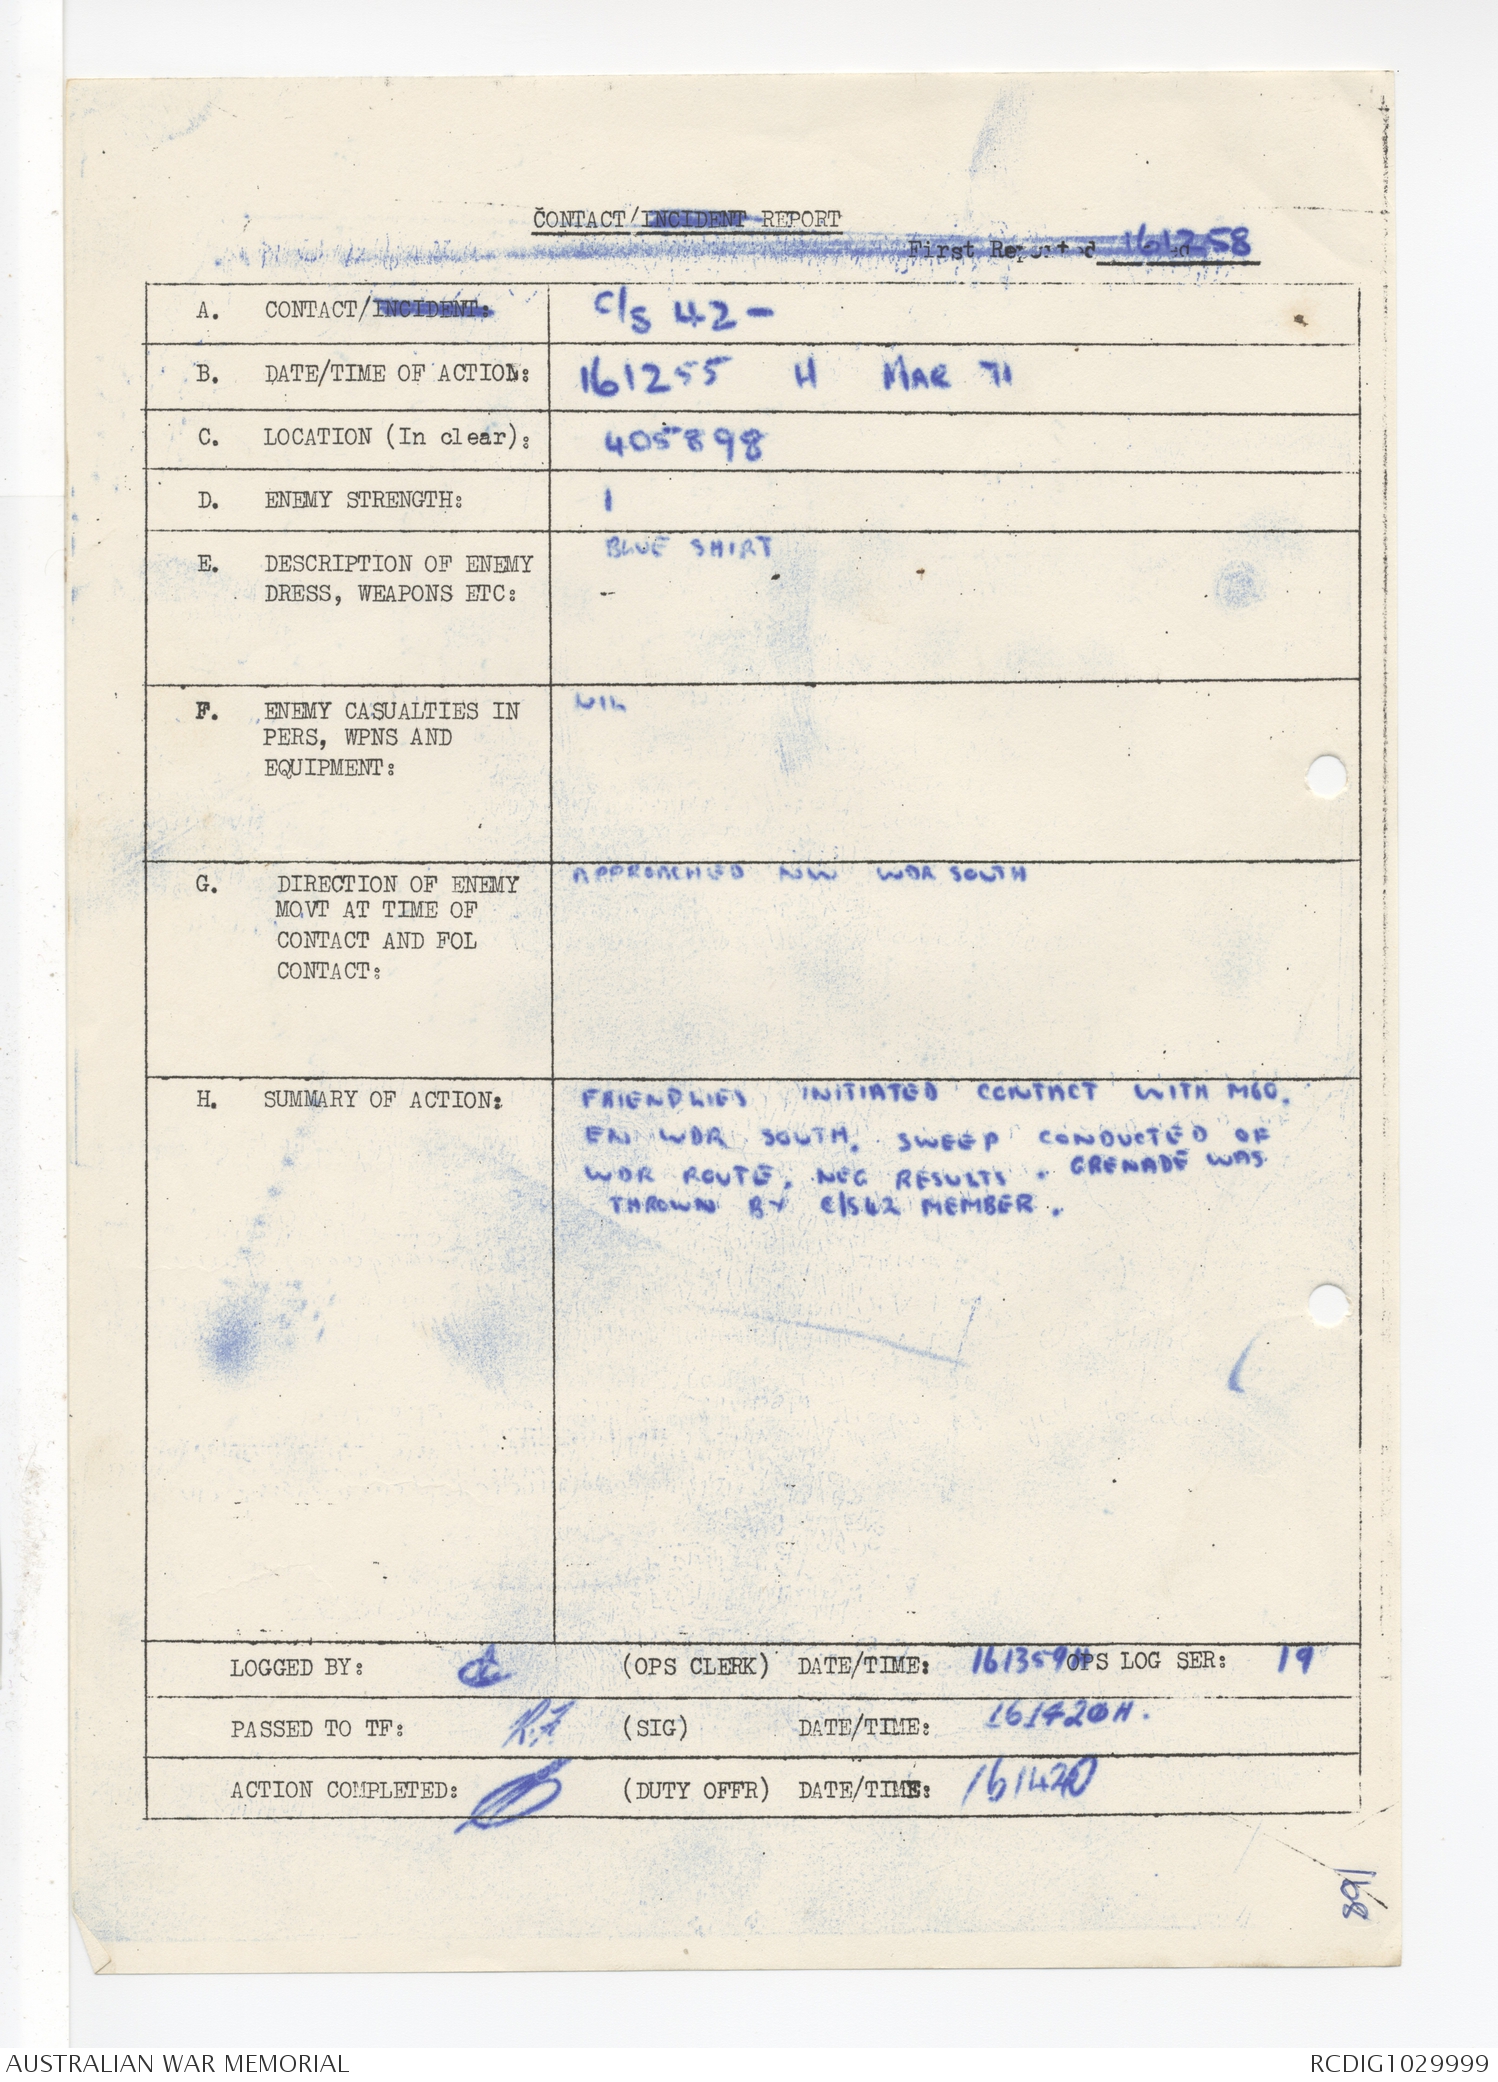 CONTACT/INCIDENT REPORT
First Reported 161258
A. CONTACT/INCIDENT: C/S 42 -
B. DATE/TIME OF ACTION: 161255 H MAR 71
C. LOCATION (In clear): 405898
D. ENEMY STRENGTH: 1
E. DESCRIPTION OF ENEMY BLUE SHIRT
DRESS, WEAPONS ETC: -
F. ENEMY CASUALTIES IN NIL
PERS, WPNS AND
EQUIPMENT:
G. DIRECTION OF ENEMY APPROACHED NW WDR SOUTH
MOVT AT TIME OF
CONTACT AND FOL
CONTACT:
H. SUMMARY OF ACTION: FRIENDLIES INITIATED CONTACT WITH M60.
EN WDR SOUTH. SWEEP CONDUCTED OF
WDR ROUTE. NEG RESULTS. GRENADE WAS
THROWN BY C/S42 MEMBER.
LOGGED BY: (OPS CLERK) DATE/TIME: 161359H OPS LOG SER: 19
PASSED TO TF: (SIG) DATE/TIME: 161420H.
ACTION COMPLETED: (DUTY OFFR) DATE/TIME: 161420
168
AUSTRALIAN WAR MEMORIAL RCDIG1029999